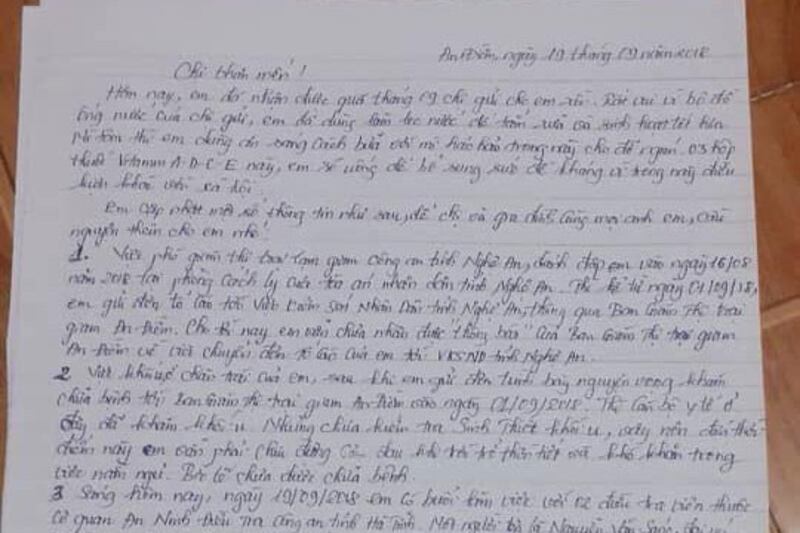 An Điềm, ngày 19 tháng 09 năm 2018
Chị thân mến!
Hôm nay, em đã nhận được quà tháng 09 chị gửi cho em rồi. Rất vui vì bộ đồ
ống nước của chị gửi, em đã dùng làm lọc nước để tắm rửa và sinh hoạt tốt hơn
Mì tôm thì em dùng ăn sáng cách bữa với mì hảo hảo trong này cho đỡ ngán. 03 hộp
thuốc Vitamin A-D-C-E này, em sẽ uống để bổ sung sức đề kháng vì trong này điều
kiện khác với xã hội.
Em cập nhật một số thông tin như sau, để chị và gia đình cùng mọi anh em, cầu
nguyện thêm cho em nhé!
1. Việc phó giám thị trại tạm giam công an tỉnh Nghệ An, đánh đập em vào ngày 16/08
năm 2018 tại phòng cách ly của tòa án nhân dân tỉnh Nghệ An. Thì kể từ ngày 01/09/18,
em gửi đơn tố cáo tới Viện Kiểm sát Nhân Dân tỉnh Nghệ An, thông qua Ban Giám Thị trại
giam An-Điềm. Cho tới nay em vẫn chưa nhận được "thông báo" của Ban Giám Thị trại giam
An-Điềm về việc chuyển đơn tố cáo của em tới VKSND tỉnh Nghệ An.
2 Việc khối u ở chân trái của em, sau khi em gửi đơn trình bày nguyện vọng khám
chữa bệnh tới ban Giám thị trại giam An-Điềm vào ngày 01/09/2018. Thì Cán bộ y tế ở
đây đã khám khối u. Nhưng chưa kiểm tra Sinh Thiết khối u, vậy nên đến thời
điểm này em vẫn phải chịu đựng cơn đau khi trái trở thời tiết và khó khăn trong
việc nằm ngủ. Bởi lẽ chưa được chữa bệnh.
3 Sáng hôm nay, ngày 19/09/2018 em có buổi làm việc với 02 điều tra viên thuộc
Cơ quan An Ninh Điều Tra Công an tỉnh Hà Tĩnh. Một người là Nguyễn Văn